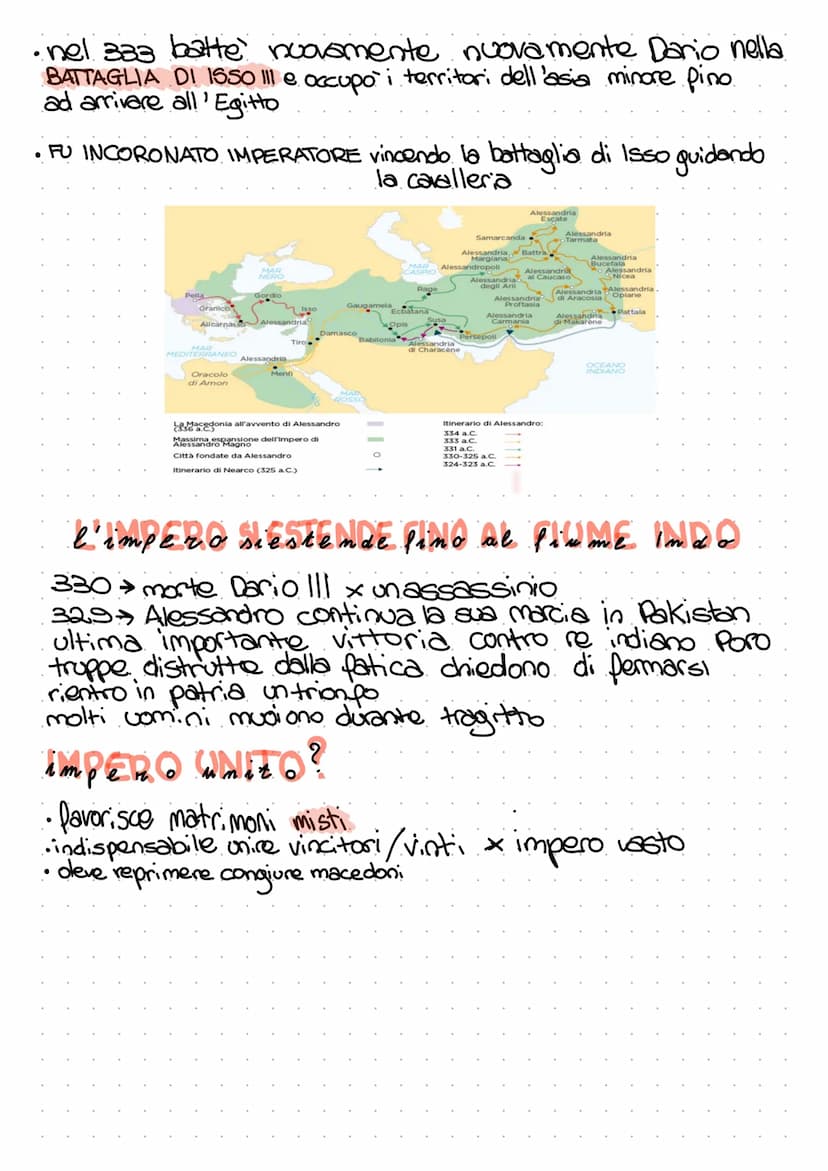 • nel 333 batte' nuovamente nuovamente Dario nella
BATTAGLIA DI ISSO III e occupo' i territori dell'asia minore fino
ad arrivare all'Egitto
• FU INCORONATO IMPERATORE vincendo la battaglia di Isso guidando
la cavalleria
Alessandria
Escate
Samarcanda
Alessandria
Tarmata
Alessandria
Margiana
Battra
Alessandria
Bucefala
MAR
NERO
MAR
CASPIO
Alessandropoli
Alessandria
al Caucaso
Alessandria
Nicea
Alessandria
degli Arii
Rage
Pella
Gordio
Alessandria
di Aracosia
Alessandria
Opiane
Granico
Isso
Gaugamela
Ecbatana
Alessandria
Proftasia
Alicarnasso
Alessandria
Opis
Susa
Alessandria
Carmania
Alessandria
di Makarène
Pattala
Damasco
Tiro
Babilonia
Persepoli
Alessandria
di Characène
MAR
MEDITERRANEO
Alessandria
OCEANO
INDIANO
Oracolo
di Amon
Menfi
MAR
ROSSO
La Macedonia all'avvento di Alessandro
(336 a.C.)
Massima espansione dell'Impero di
Alessandro Magno
Città fondate da Alessandro
Itinerario di Nearco (325 a.C.)
Itinerario di Alessandro:
334 a.C.
333 a.C.
331 a.C.
330-325 a.C.
324-323 a.C.
l'IMPERO SI ESTENDE fINO AL FIUME INDO
330 → morte Dario III x un assassinio
329 → Alessandro continua la sua marcia in Pakistan
ultima importante vittoria contro re indiano Poro
truppe distrutte dalla fatica chiedono di fermarsi
rientro in patria un trionfo
molti uomini muoiono durante tragitto
imPERO UNITO?
• favorisce matrimoni misti
• indispensabile unire vincitori/vinti x impero vasto
• deve reprimere congiure macedoni